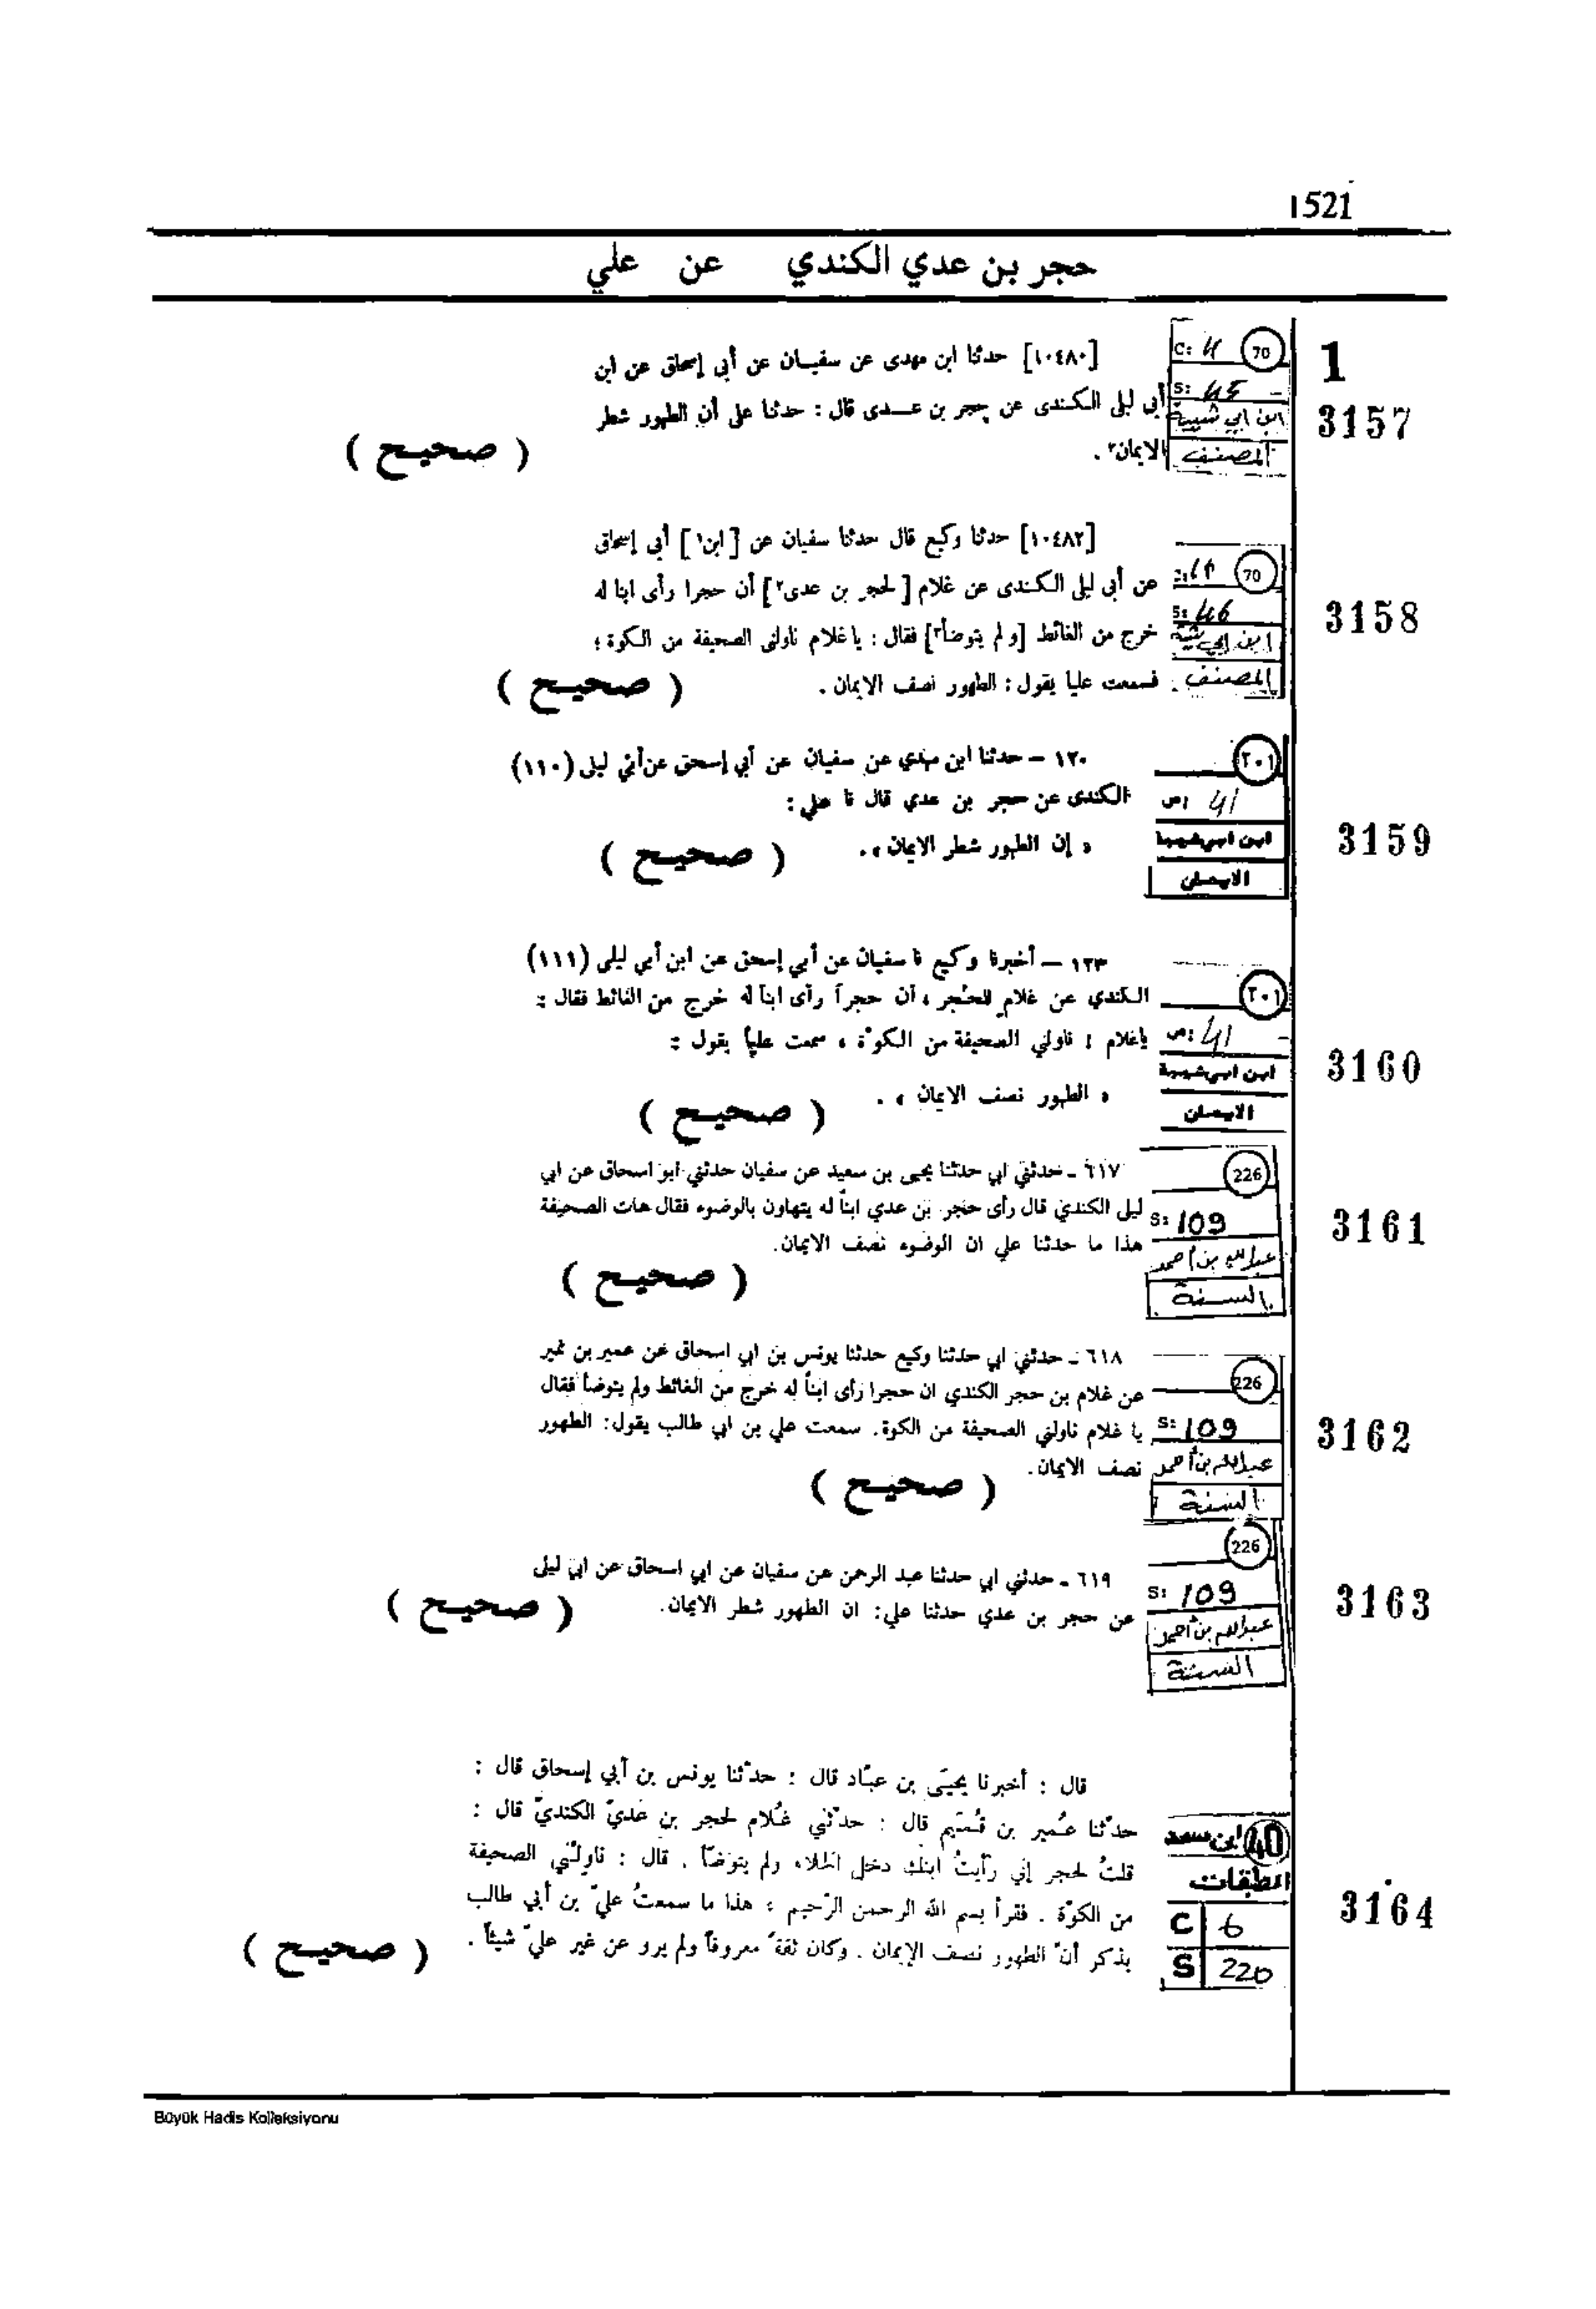 1521
حجر بن عدي الكندي عن علي
1
3157
C: 11 70
S: 45
ابن ابي شيبة
المصنف
[١٠٤٨٠] حدثنا ابن مهدى عن سفيان عن أبي إسحاق عن ابن
أبي ليلى الكندى عن حجر بن عدى قال : حدثنا على أن الطهور شطر
الايمان٢ .
( صحيح )
3158
70
S: 46
ابن ابي شيبة
المصنف
[١٠٤٨٢] حدثنا وكيع قال حدثنا سفيان عن [ ابن١ ] أبى إسحاق
عن أبى ليلى الكندى عن غلام [ لحجر بن عدى٢ ] أن حجرا رأى ابنا له
خرج من الغائط [و لم يتوضأ٣] فقال : يا غلام ناولنى الصحيفة من الكوة ؛
فسمعت عليا يقول : الطهور نصف الايمان .
( صحيح )
3159
٢٠١
ص: 41
ابن ابي شيبة
الايمان
١٢٠ – حدثنا ابن مهدي عن سفيان عن أبي إسحق عن أبي ليلى (١١٠)
الكندى عن حجر بن عدي قال نا علي :
« إن الطهور شطر الايمان » .
( صحيح )
3160
٢٠١
ص: 41
ابن ابي شيبة
الايمان
١٢٣ – أخبرنا وكيع نا سفيان عن أبي إسحق عن ابن أبي ليلى (١١١)
الكندي عن غلام لحُجر ، أن حجراً رأى ابناً له خرج من الغائط فقال :
ياغلام ! ناولني الصحيفة من الكوّة ، سمعت علياً يقول :
« الطهور نصف الايمان » .
( صحيح )
3161
226
S: 109
عبدالله بن احمد
السنة
٦١٧ ـ حدثني ابي حدثنا يحيى بن سعيد عن سفيان حدثني ابو اسحاق عن ابي
ليلى الكندي قال رأى حجر بن عدي ابناً له يتهاون بالوضوء فقال هات الصحيفة
هذا ما حدثنا علي ان الوضوء نصف الايمان.
( صحيح )
3162
226
S: 109
عبدالله بن أحمد
السنة
٦١٨ ـ حدثني ابي حدثنا وكيع حدثنا يونس بن ابي اسحاق عن عمير بن نمير
عن غلام بن حجر الكندي ان حجرا رأى ابناً له خرج من الغائط ولم يتوضأ فقال
يا غلام ناولني الصحيفة من الكوة. سمعت علي بن ابي طالب يقول: الطهور
نصف الايمان.
( صحيح )
3163
226
S: 109
عبدالله بن أحمد
السنة
٦١٩ ـ حدثني ابي حدثنا عبد الرحمن عن سفيان عن ابي اسحاق عن ابي ليلى
عن حجر بن عدي حدثنا علي: ان الطهور شطر الايمان.
( صحيح )
3164
ابن سعد 40
الطبقات
C 6
S 220
قال : أخبرنا يحيَى بن عبّاد قال : حدّثنا يونس بن أبي إسحاق قال :
حدّثنا عُمير بن قُميم قال : حدّثني غُلام لحجر بن عَديّ الكنديّ قال :
قلتُ لحجر إني رَأيتُ ابنك دخل الخلاء ولم يتوضّأ . قال : ناولْني الصحيفة
من الكوّة . فقرأ بسم الله الرحمن الرّحيم ، هذا ما سمعتُ عليّ بن أبي طالب
يذكر أنّ الطهور نصف الإيمان . وكان ثقةً معروفاً ولم يرو عن غير عليّ شيئاً .
( صحيح )
Büyük Hadis Kolleksiyonu